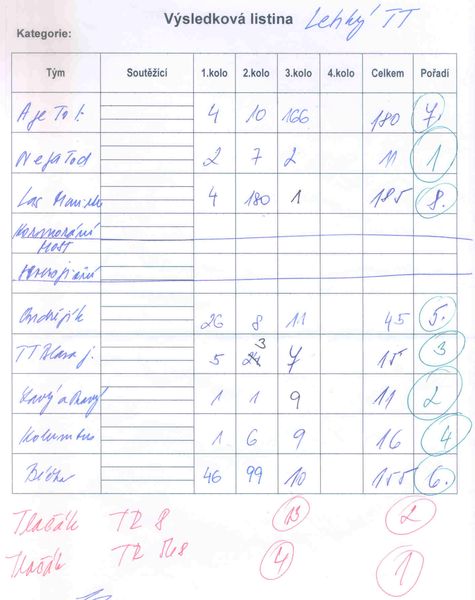 Výsledková listina Lehký TT
Kategorie:
Tým Soutěžící 1.kolo 2.kolo 3.kolo 4.kolo Celkem Pořadí
A je To t. 4 10 166 180 7.
Nejatod 2 7 2 11 1
Las 4 180 1 185 8.
Ondřejík 26 8 11 45 5.
TT j. 5 3 7 15 3
Levý a Pravý 1 1 9 11 2
Kolumbus 1 6 9 16 4
46 99 10 155 6.
Tlačák TR 8 13 2
Tlačák TR 4 1